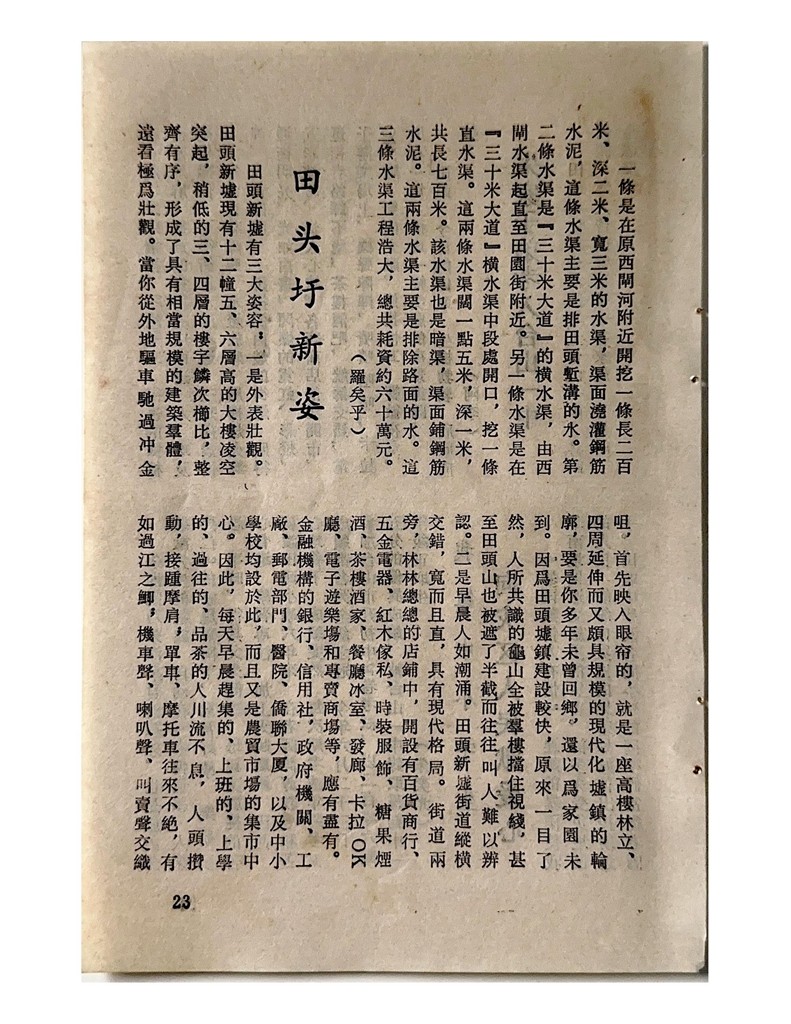 一條是在原西閘河附近開挖一條長二百
米、深二米、寬三米的水渠，渠面澆灌鋼筋
水泥，這條水渠主要是排田頭塹溝的水。第
二條水渠是『三十米大道』的横水渠，由西
閘水渠起直至田園街附近。另一條水渠是在
『三十米大道』横水渠中段處開口，挖一條
直水渠。這兩條水渠闊一點五米，深一米，
共長七百米。該水渠也是暗渠，渠面鋪鋼筋
水泥。這兩條水渠主要是排除路面的水。這
三條水渠工程浩大，總共耗資約六十萬元。
（羅矣乎）
田头圩新姿
田頭新墟有三大姿容：一是外表壯觀。
田頭新墟現有十二幢五、六層高的大樓凌空
突起，稍低的三、四層的樓宇鱗次櫛比，整
齊有序，形成了具有相當規模的建築羣體，
遠看極爲壯觀。當你從外地驅車馳過冲金
咀，首先映入眼帘的，就是一座高樓林立、
四周延伸而又頗具規模的現代化墟鎮的輪
廓，要是你多年未曾回鄉，還以爲家園未
到。因爲田頭墟鎮建設較快，原來一目了
然，人所共識的龜山全被羣樓擋住視綫，甚
至田頭山也被遮了半截而往往叫人難以辨
認。二是早晨人如潮涌。田頭新墟街道縱横
交錯，寬而且直，具有現代格局。街道兩
旁，林林總總的店鋪中，開設有百貨商行、
五金電器、紅木傢私、時裝服飾、糖果煙
酒、茶樓酒家、餐廳冰室、發廊、卡拉OK
廳、電子遊樂場和專賣商場等，應有盡有。
金融機構的銀行、信用社，政府機關、工
廠、郵電部門、醫院、僑聯大厦，以及中小
學校均設於此，而且又是農貿市場的集市中
心。因此，每天早晨趕集的、上班的、上學
的、過往的、品茶的人川流不息，人頭攢
動，接踵摩肩，單車、摩托車往來不絶，有
如過江之鯽，機車聲、喇叭聲、叫賣聲交織
23